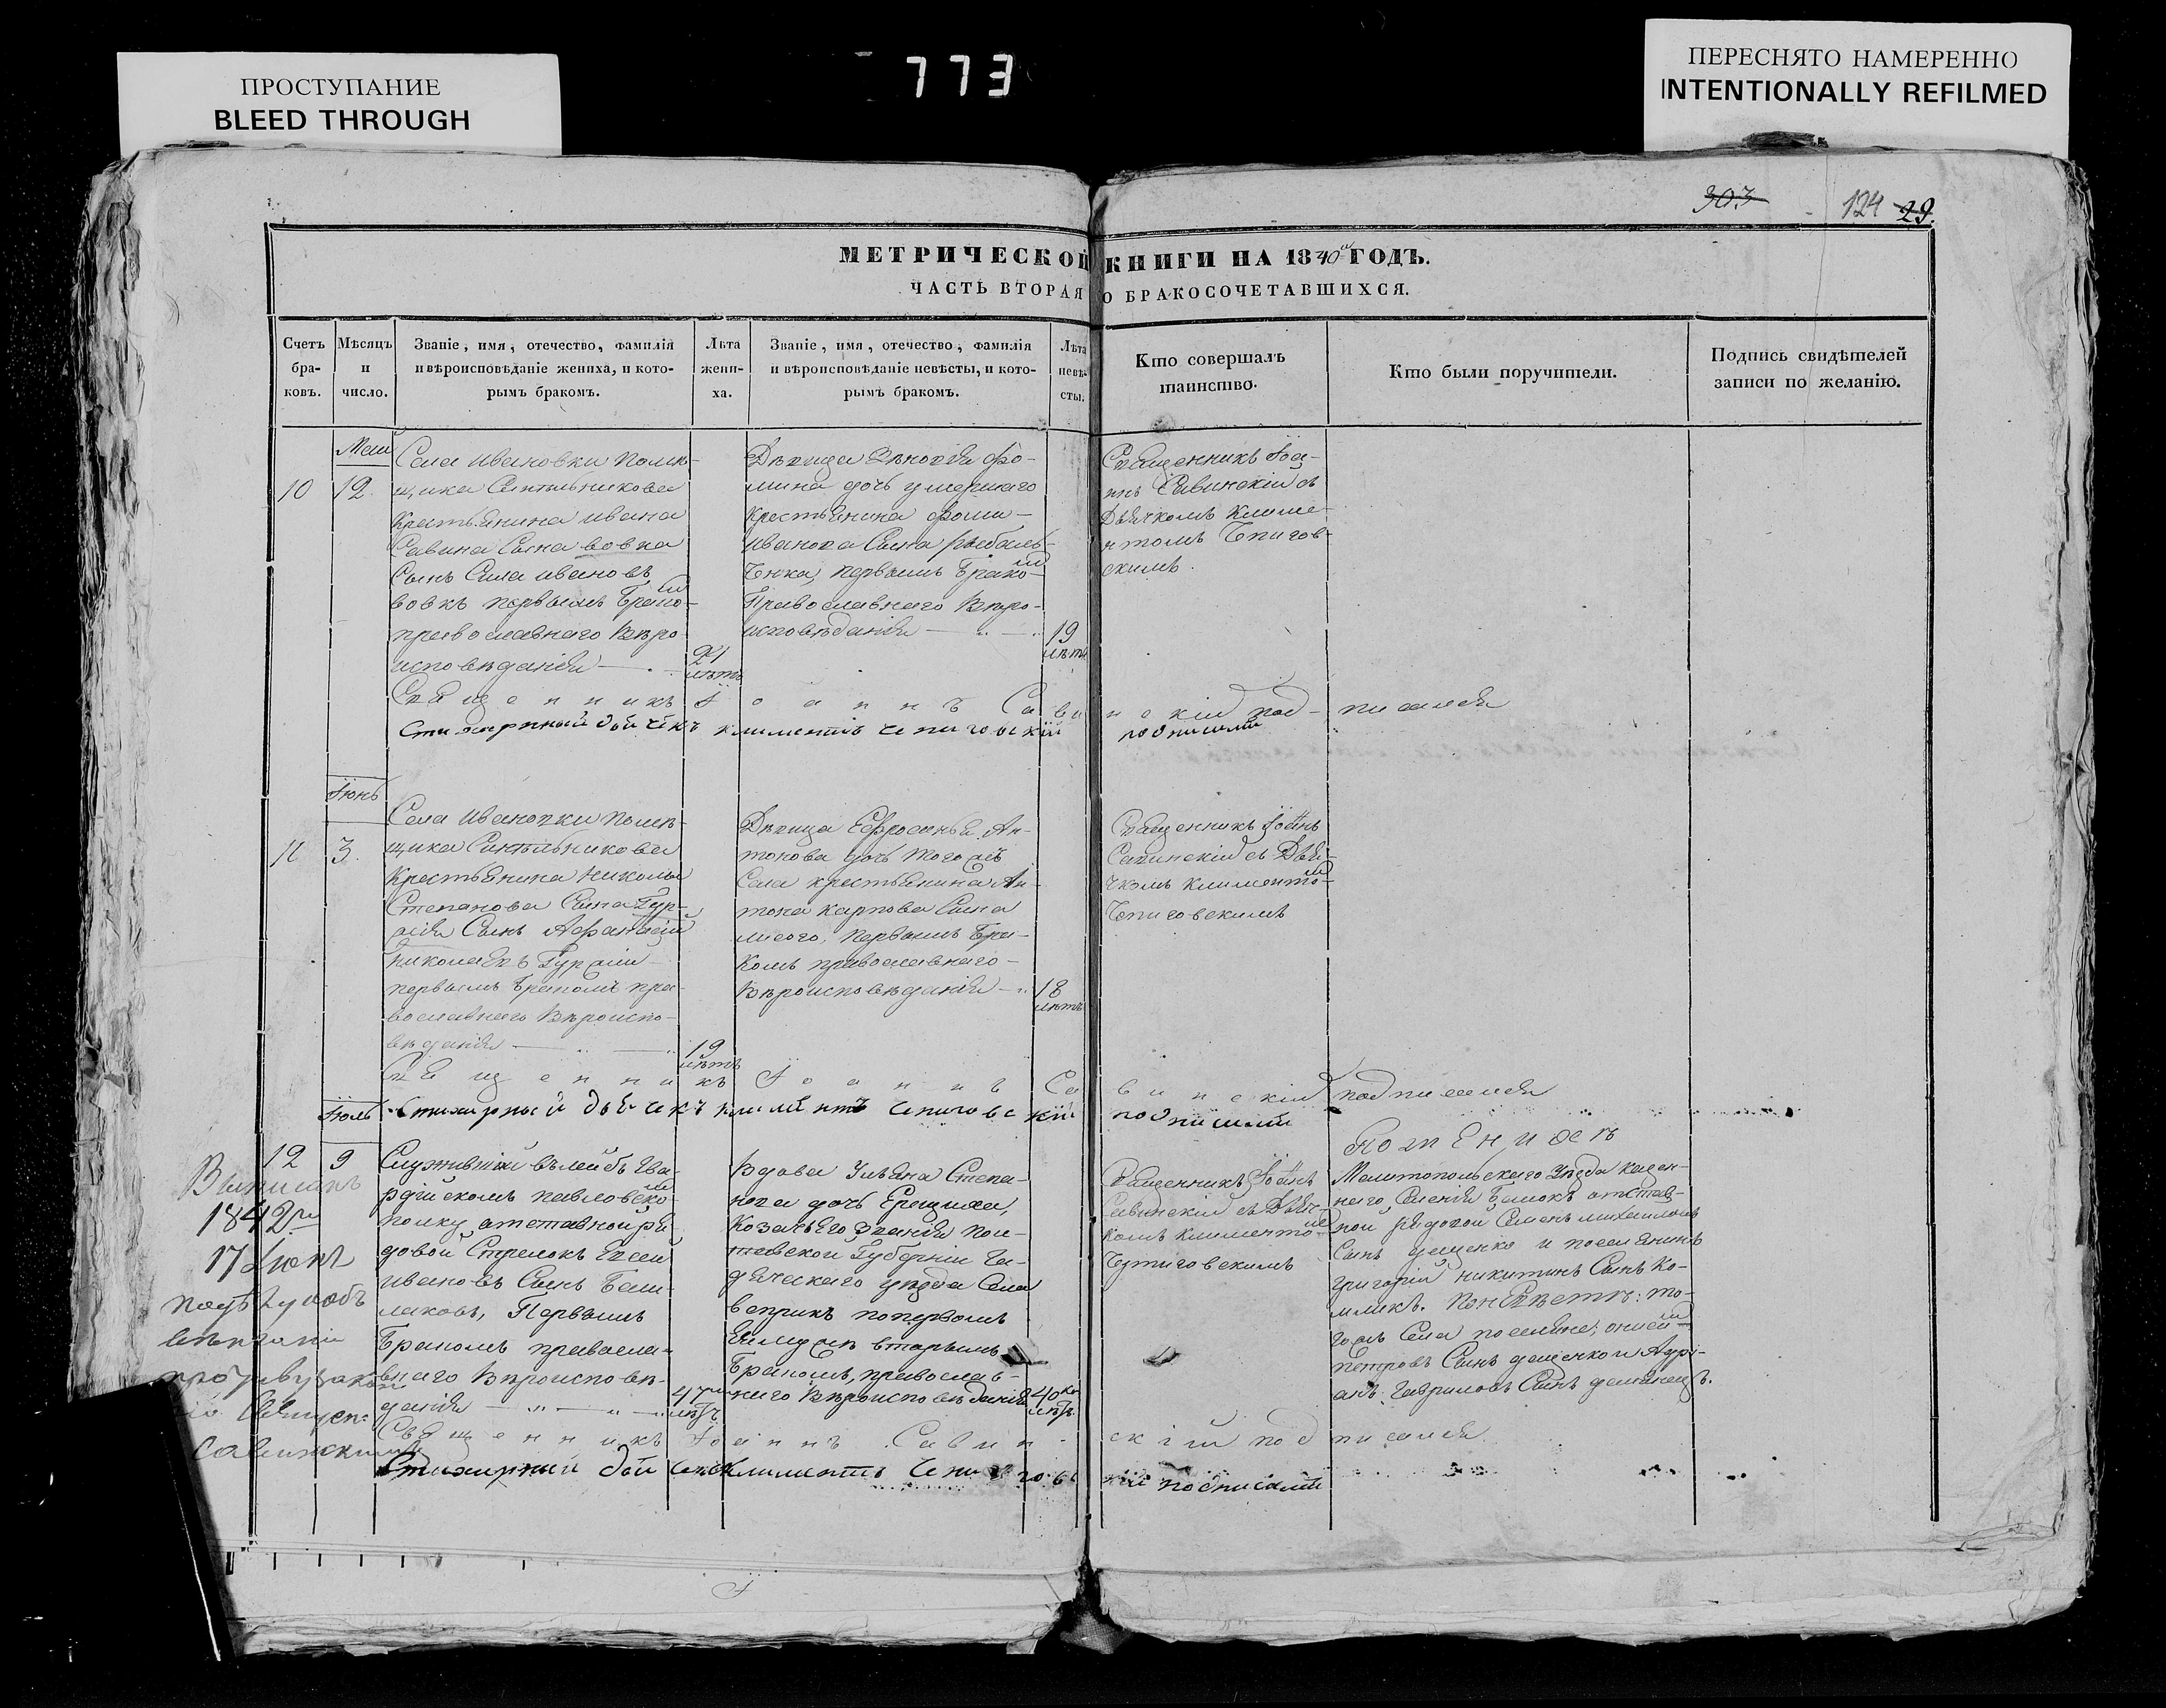 773
ПРОСТУПАНИЕ
BLEED THROUGH
ПЕРЕСНЯТО НАМЕРЕННО
INTENTIONALLY REFILMED
303
124 29.
МЕТРИЧЕСКОЙ КНИГИ НА 1840й ГОДЪ.
ЧАСТЬ ВТОРАЯ О БРАКОСОЧЕТАВШИХСЯ.
Счетъ
бра-
ковъ.
Мѣсяцъ
и
число.
Званіе, имя, отечество, фамилія
и вѣроисповѣданіе жениха, и кото-
рымъ бракомъ.
Лѣта
жени-
ха.
Званіе, имя, отечество, фамилія
и вѣроисповѣданіе невѣсты, и кото-
рымъ бракомъ.
Лѣта
невѣ-
сты.
Кто совершалъ
таинство.
Кто были поручители.
Подпись свидѣтелей
записи по желанію.
Маій
10
12
Села Ивановки помѣ-
щика Синтильникова
Крестьянина Ивана
Савина Сына вовка
Сынъ Сила Ивановъ
вовкъ первымъ брако-мъ
православнаго Вѣро-
исповѣданія
21
лѣтъ
Дѣвица Фо-
мина дочь умершаго
Крестьянина Фомы
Иванова Сына рыбаль-
Ченка, первымъ брако-мъ
Православнаго Вѣро-
исповѣданія
19
лѣтъ
Священникъ Іоа-
ннъ Савинскій съ
Дьячкомъ Климе-
нтомъ Чпигов-
скимъ.
Священникъ Іоаннъ Савинскій подписался
Стихарный дьячекъ климентъ чпиговскій подписалъ
Іюнь
11
3.
Села Ивановки помѣ-
щика Синтильникова
Крестьянина Николы
Степанова Сына Гур-
Сынъ Афанасій
первымъ бракомъ пра-
вославнаго Вѣроиспо-
вѣданія
19
лѣтъ
Дѣвица Ефросинья Ан-
тонова дочь того жъ
Села крестьянина Ан-
тона Карпова Сына
первымъ бра-
комъ православнаго
Вѣроисповѣданія
18
лѣтъ
Священникъ Іоаннъ
Савинскій съ Дья-
чкомъ Климентомъ
Чпиговскимъ
Священникъ Іоаннъ Савинскій подписался
Стихарный дьячекъ климентъ чпиговскій подписалъ
Іюль
12
9
Служившій въ лейбъ гва-
рдійскомъ павловскомъ
полку отставной ря-
довой Стрелокъ
Ивановъ Сынъ
Первымъ
бракомъ правосла-
внаго Вѣроисповѣ-
данія
47
лѣтъ
Вдова Ульяна Степа-
нова дочь
Козачьяго Званія Пол-
тавской Губерніи Га-
дячскаго уѣзда Села
веприкъ по первомъ
вторымъ
бракомъ, православ-
наго Вѣроисповѣданія
40
лѣтъ
Священникъ Іоаннъ
Савинскій съ Дьяч-
комъ Климентомъ
Чпиговскимъ
По женихѣ
Мелитопольскаго Уѣзда казен-
наго Селенія Бѣлокъ отстав-
ной рядовой Семенъ Михаиловъ
Сынъ и поселянинъ
григорій никитинъ Сынъ Ко-
По невѣстѣ: то-
гожъ Села поселяне;
петровъ Сынъ и Адрі-
анъ Гавриловъ Сынъ
Священникъ Іоаннъ Савинскій подписался
Стихарный дьячекъ климентъ чпиговскій подписалъ
Выписанъ
1842
17